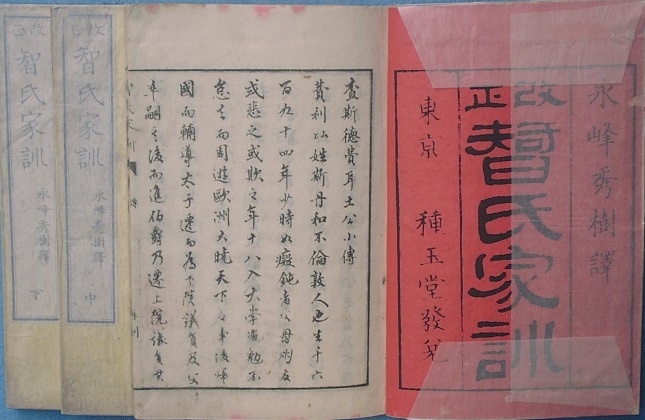 永峰秀樹譯
改正
智氏家訓
東京 種玉堂發兌
查斯德費耳土公小傳
費利以姓斯丹和不倫敦人也生千六
百九十四年少時如癡鈍者父母朋友
或悲之或欺之年十八入大學勉不
怠而周遊歐洲大曉天下之事後帰
國而輔導太子遷而為下院議員及父
卒嗣之後而進伯爵乃遷上院議員其
改正
智氏家訓
永峰秀樹譯
中
改正
智氏家訓
永峰秀樹譯
下